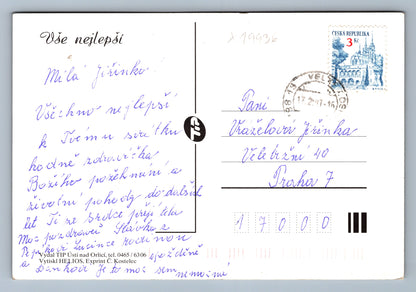 Vše nejlepší
Milá Jiřinko!
Všechno nejlepší
k Tvému svátku
hodně zdravíčka
Božího požehnání a
životní pohody do dalších
let Ti ze srdce přejí teta
Moc pozdravů Slávka s
rodinou
a
Je to moc
Vydal TIP Ústí nad Orlicí, tel. 0465 / 6306
Vytiskl HELIOS, Exprint Č. Kostelec
ČESKÁ REPUBLIKA
3 Kč
Paní
Vraželova Jiřinka
Veletržní 40
Praha 7
17000